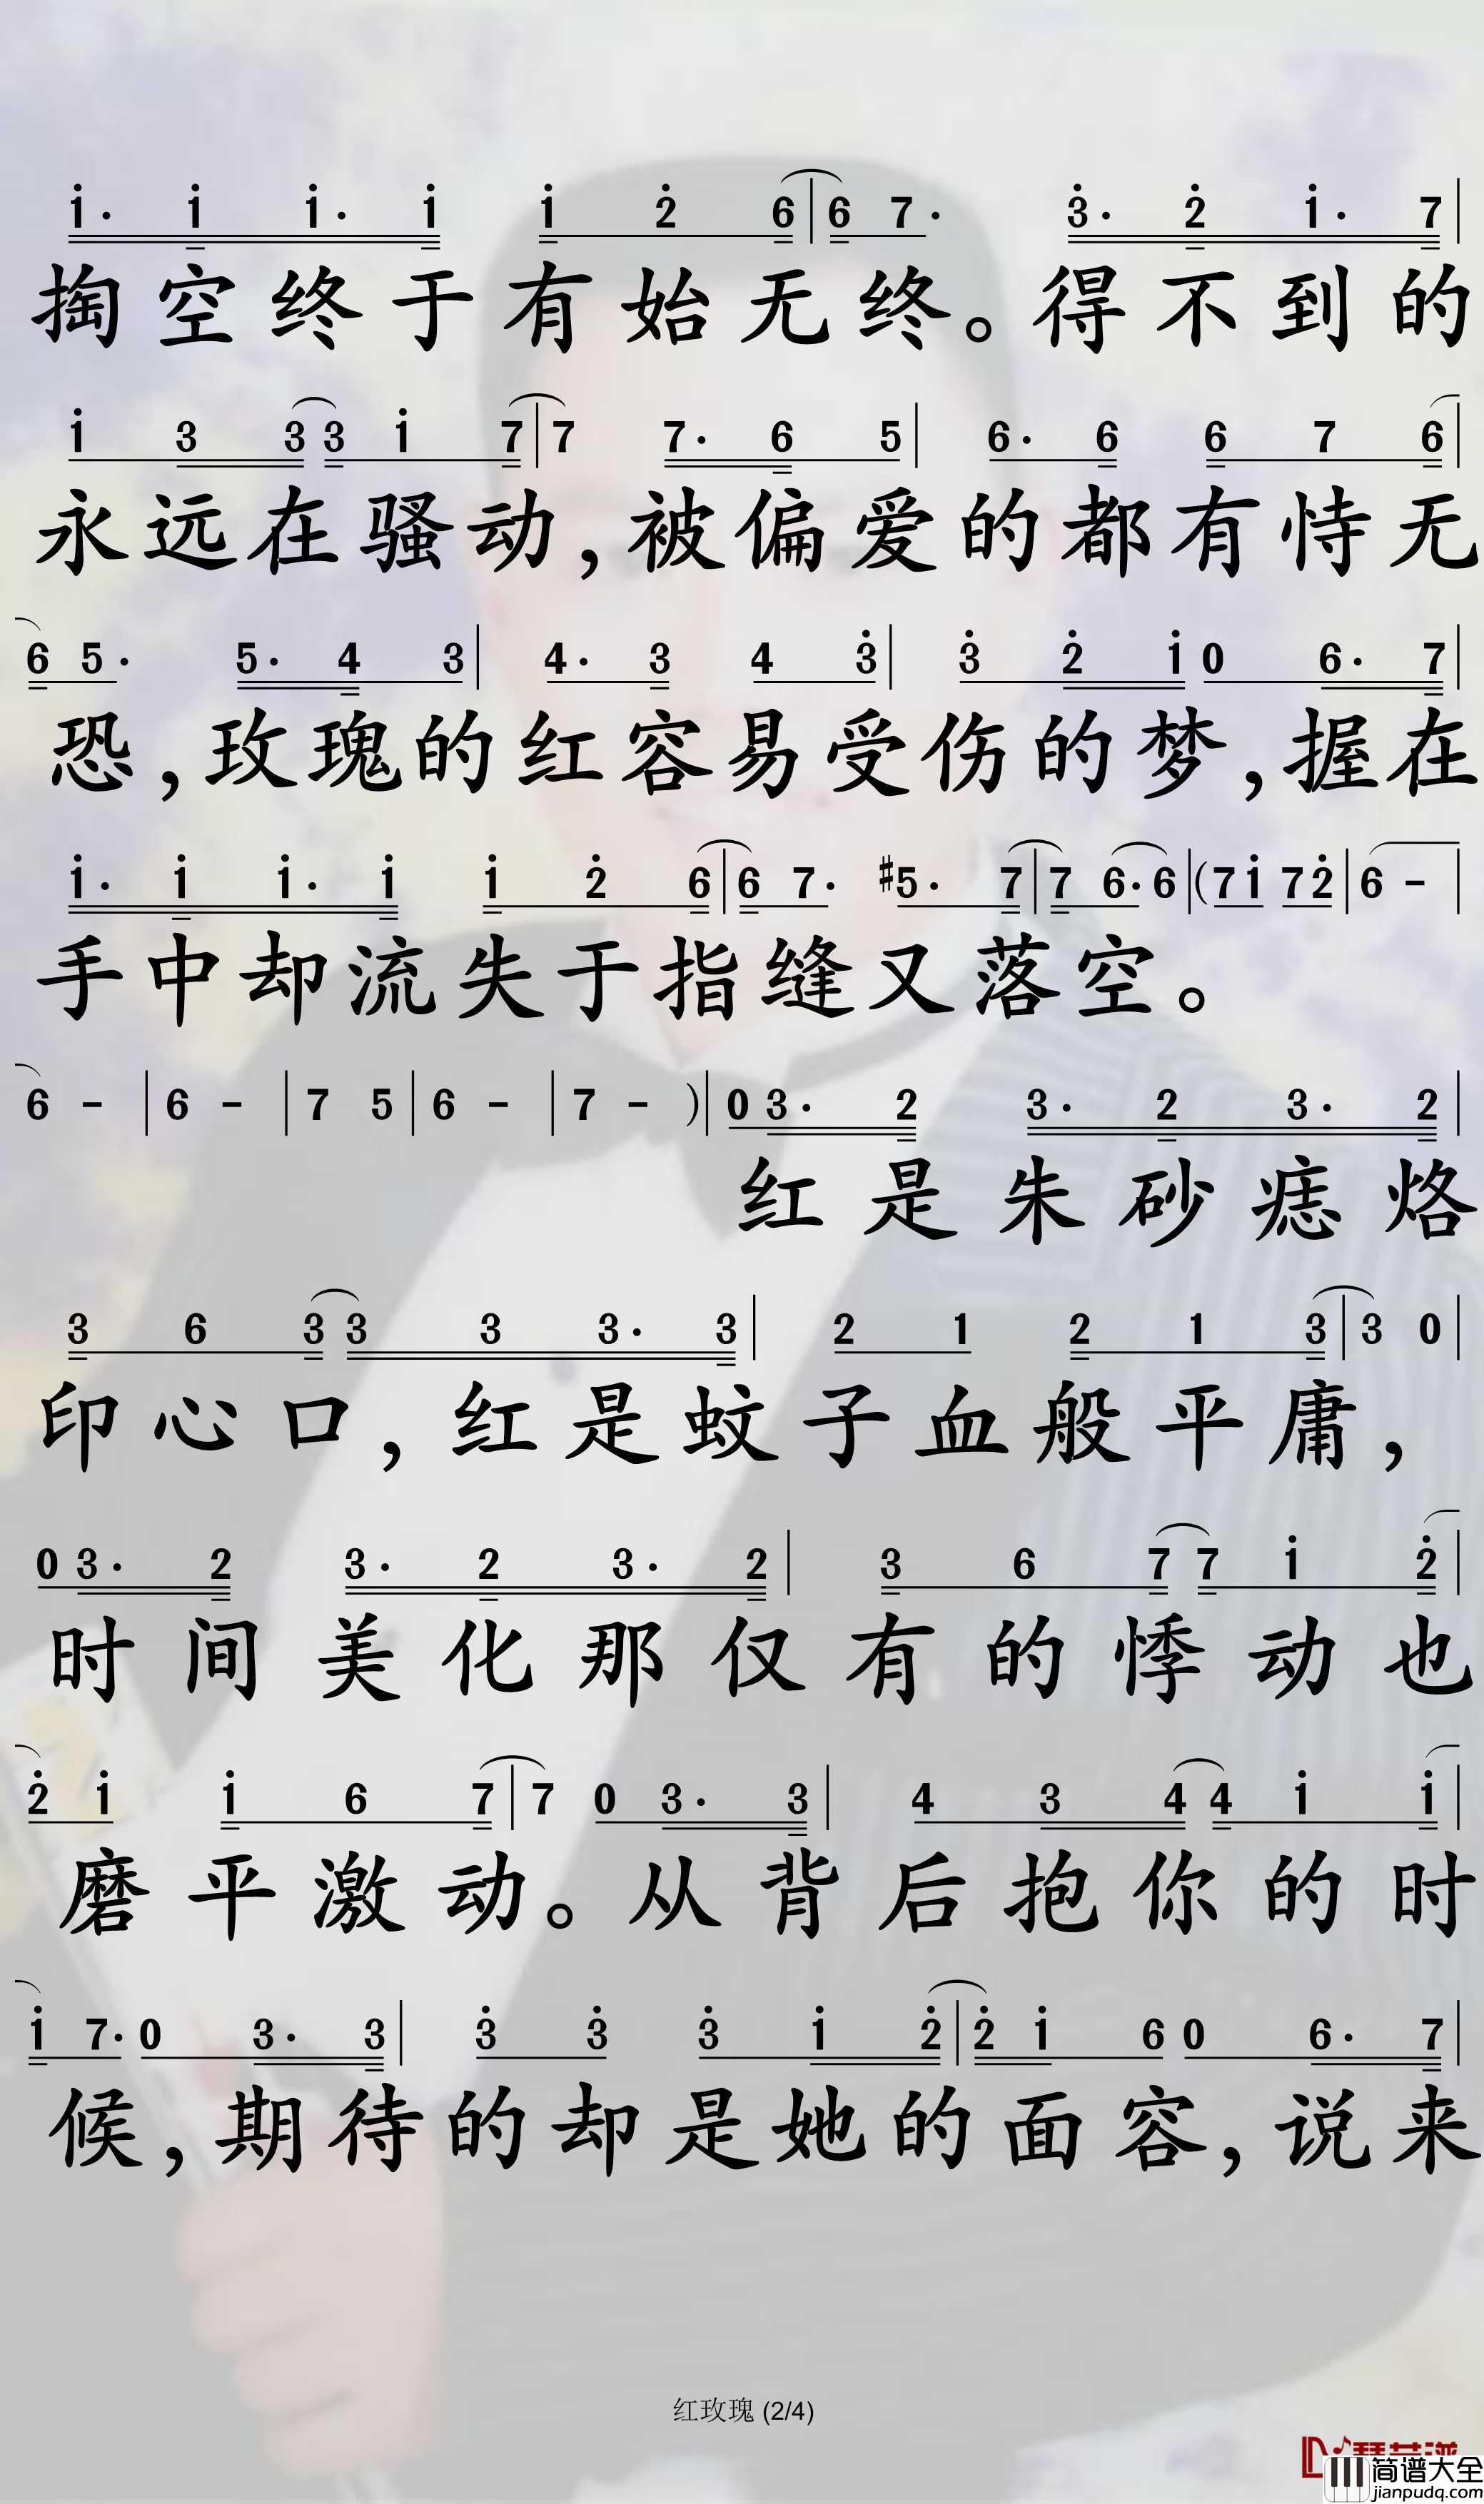 i· i i· i i 2 6 | 6 7· 3· 2 i· 7 |
掏空终于有始无终。得不到的
i 3 3 3 i 7 | 7 7· 6 5 | 6· 6 6 7 6 |
永远在骚动,被偏爱的都有恃无
6 5· 5· 4 3 | 4· 3 4 3 | 3 2 i 0 6· 7 |
恐,玫瑰的红容易受伤的梦,握在
i· i i· i i 2 6 | 6 7· #5· 7 | 7 6· 6 | (7 i 7 2 | 6 - |
手中却流失于指缝又落空。
6 - | 6 - | 7 5 | 6 - | 7 - ) | 0 3· 2 3· 2 3· 2 |
红是朱砂痣烙
3 6 3 3 3 3· 3 | 2 1 2 1 3 | 3 0 |
印心口,红是蚊子血般平庸,
0 3· 2 3· 2 3· 2 | 3 6 7 7 i 2 |
时间美化那仅有的悸动也
2 i i 6 7 | 7 0 3· 3 | 4 3 4 4 i i |
磨平激动。从背后抱你的时
i 7· 0 3· 3 | 3 3 3 i 2 | 2 i 6 0 6· 7 |
候,期待的却是她的面容,说来
红玫瑰 (2/4)
简谱大全
jianpudq.com